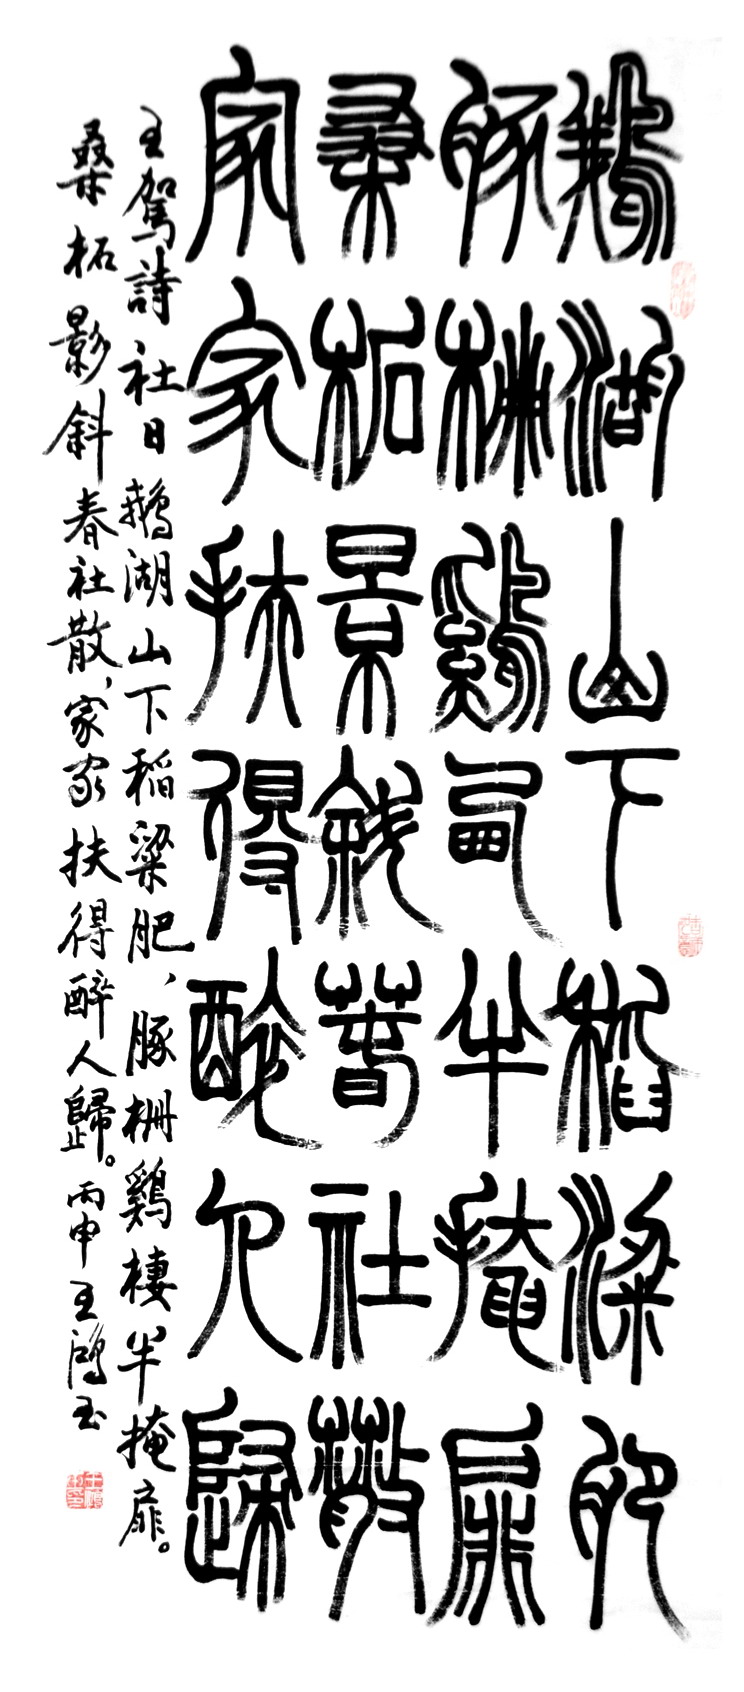 鵝湖山下稻粱肥
豚柵鷄西半掩扉
桑柘景斜春社散
家家扶得醉人歸
王駕詩社日鵝湖山下稻粱肥、豚柵鷄棲半掩扉。
桑柘影斜春社散,家家扶得醉人歸。丙申王鴻玉